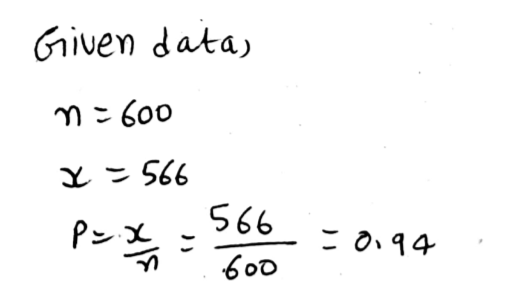 Given data,
n = 600
x = 566
P = x/n = 566/600 = 0.94